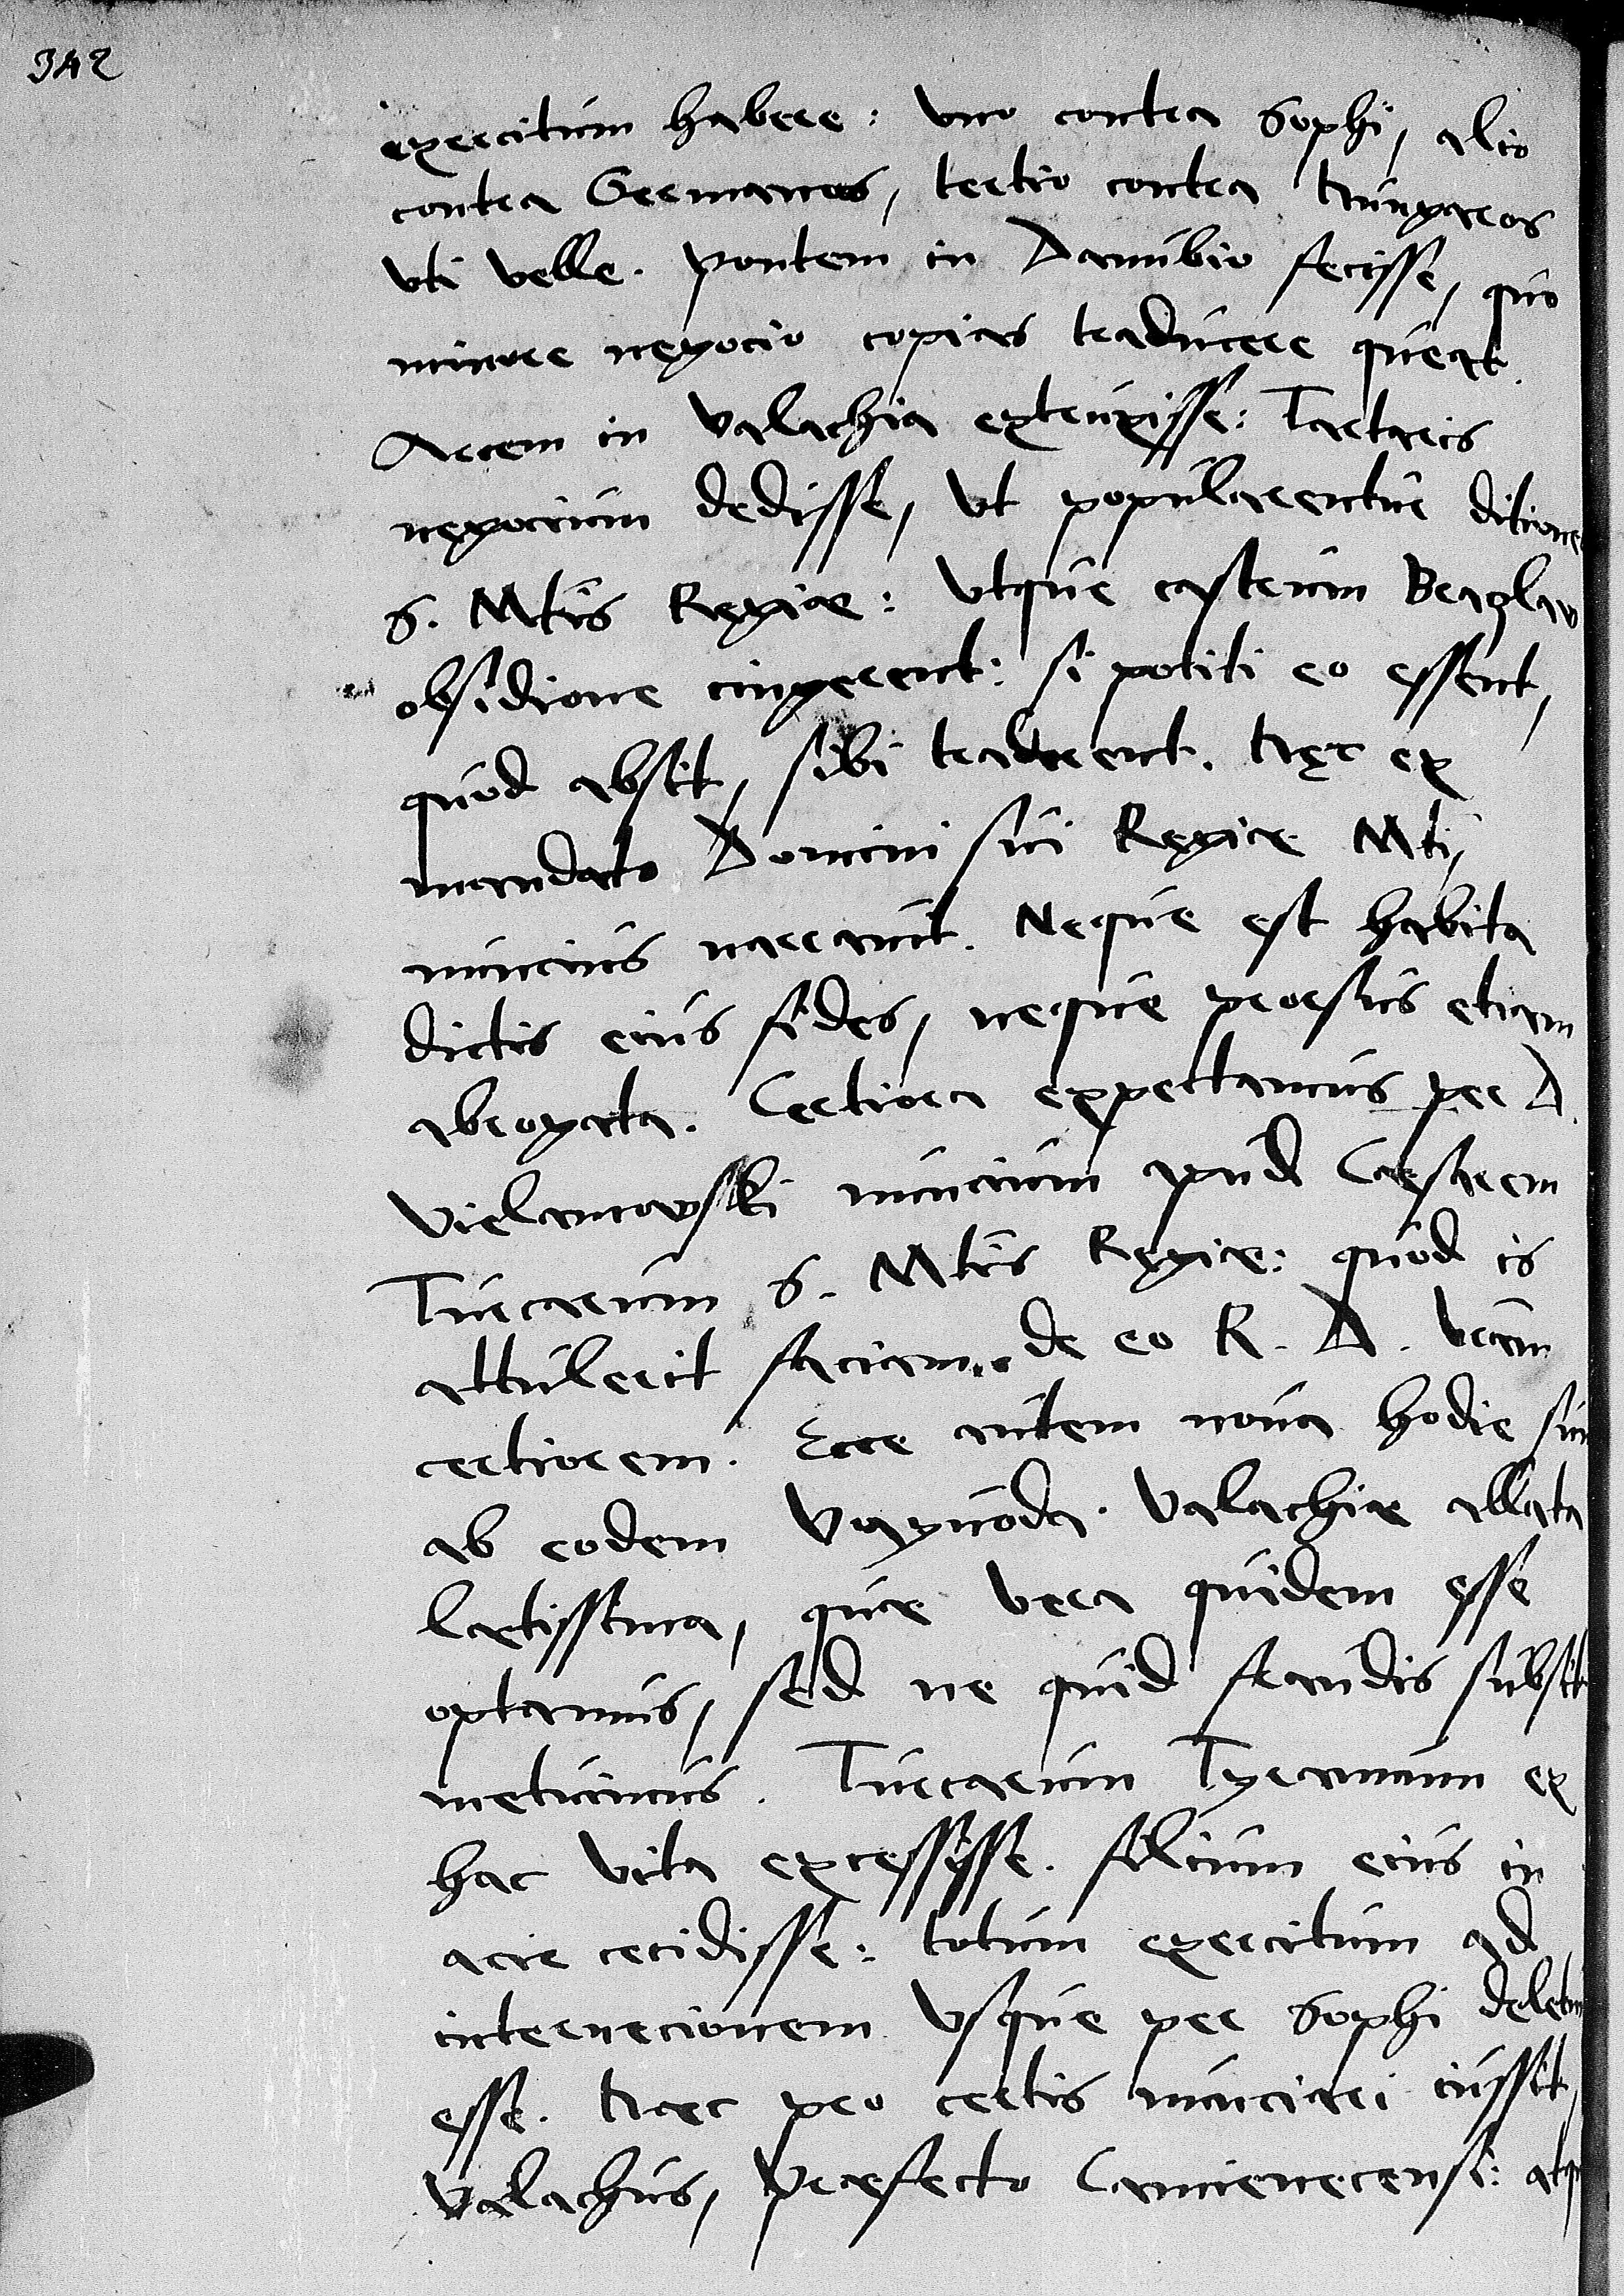 342
exercitum habere: uno contra Sophi, alio
contra Germanos, tertio contra Hungaros
uti velle. Pontem in Danubio fecisse, quo
minore negocio copias traducere queat.
Arcem in Valachia extruxisse: Tartaris
negocium dedisse, ut popularentur ditione
S. Mtis Regiae: utque castrum Braslav
obsidione cingerent: si potiti eo essent,
quod absit, sibi traderent. Hęc ex
mandato Domini sui Regiae Mti,
nuncius narravit. Neque est habita
dictis eius fides, neque prorsus etiam
abrogata. Certiora expectamus per D.
Vielamowski nuncium apud Caesarem
Turcarum S. Mtis Regiae: quod is
attulerit faciam de eo R. D. Vram
certiorem. Ecce autem nova hodie sun
ab eodem Vayvoda Valachiae allata
laetissima, quae vera quidem esse
optamus, sed ne quid fraudis subsit
metuimus. Turcarum Tyrannum ex
hac vita excessisse. filium eius in
acie cecidisse: totum exercitum ad
internecionem usque per Sophi deletu
esse. Haec pro certis nunciari iussit,
Valachus, Praefecto Camenecensi: atq